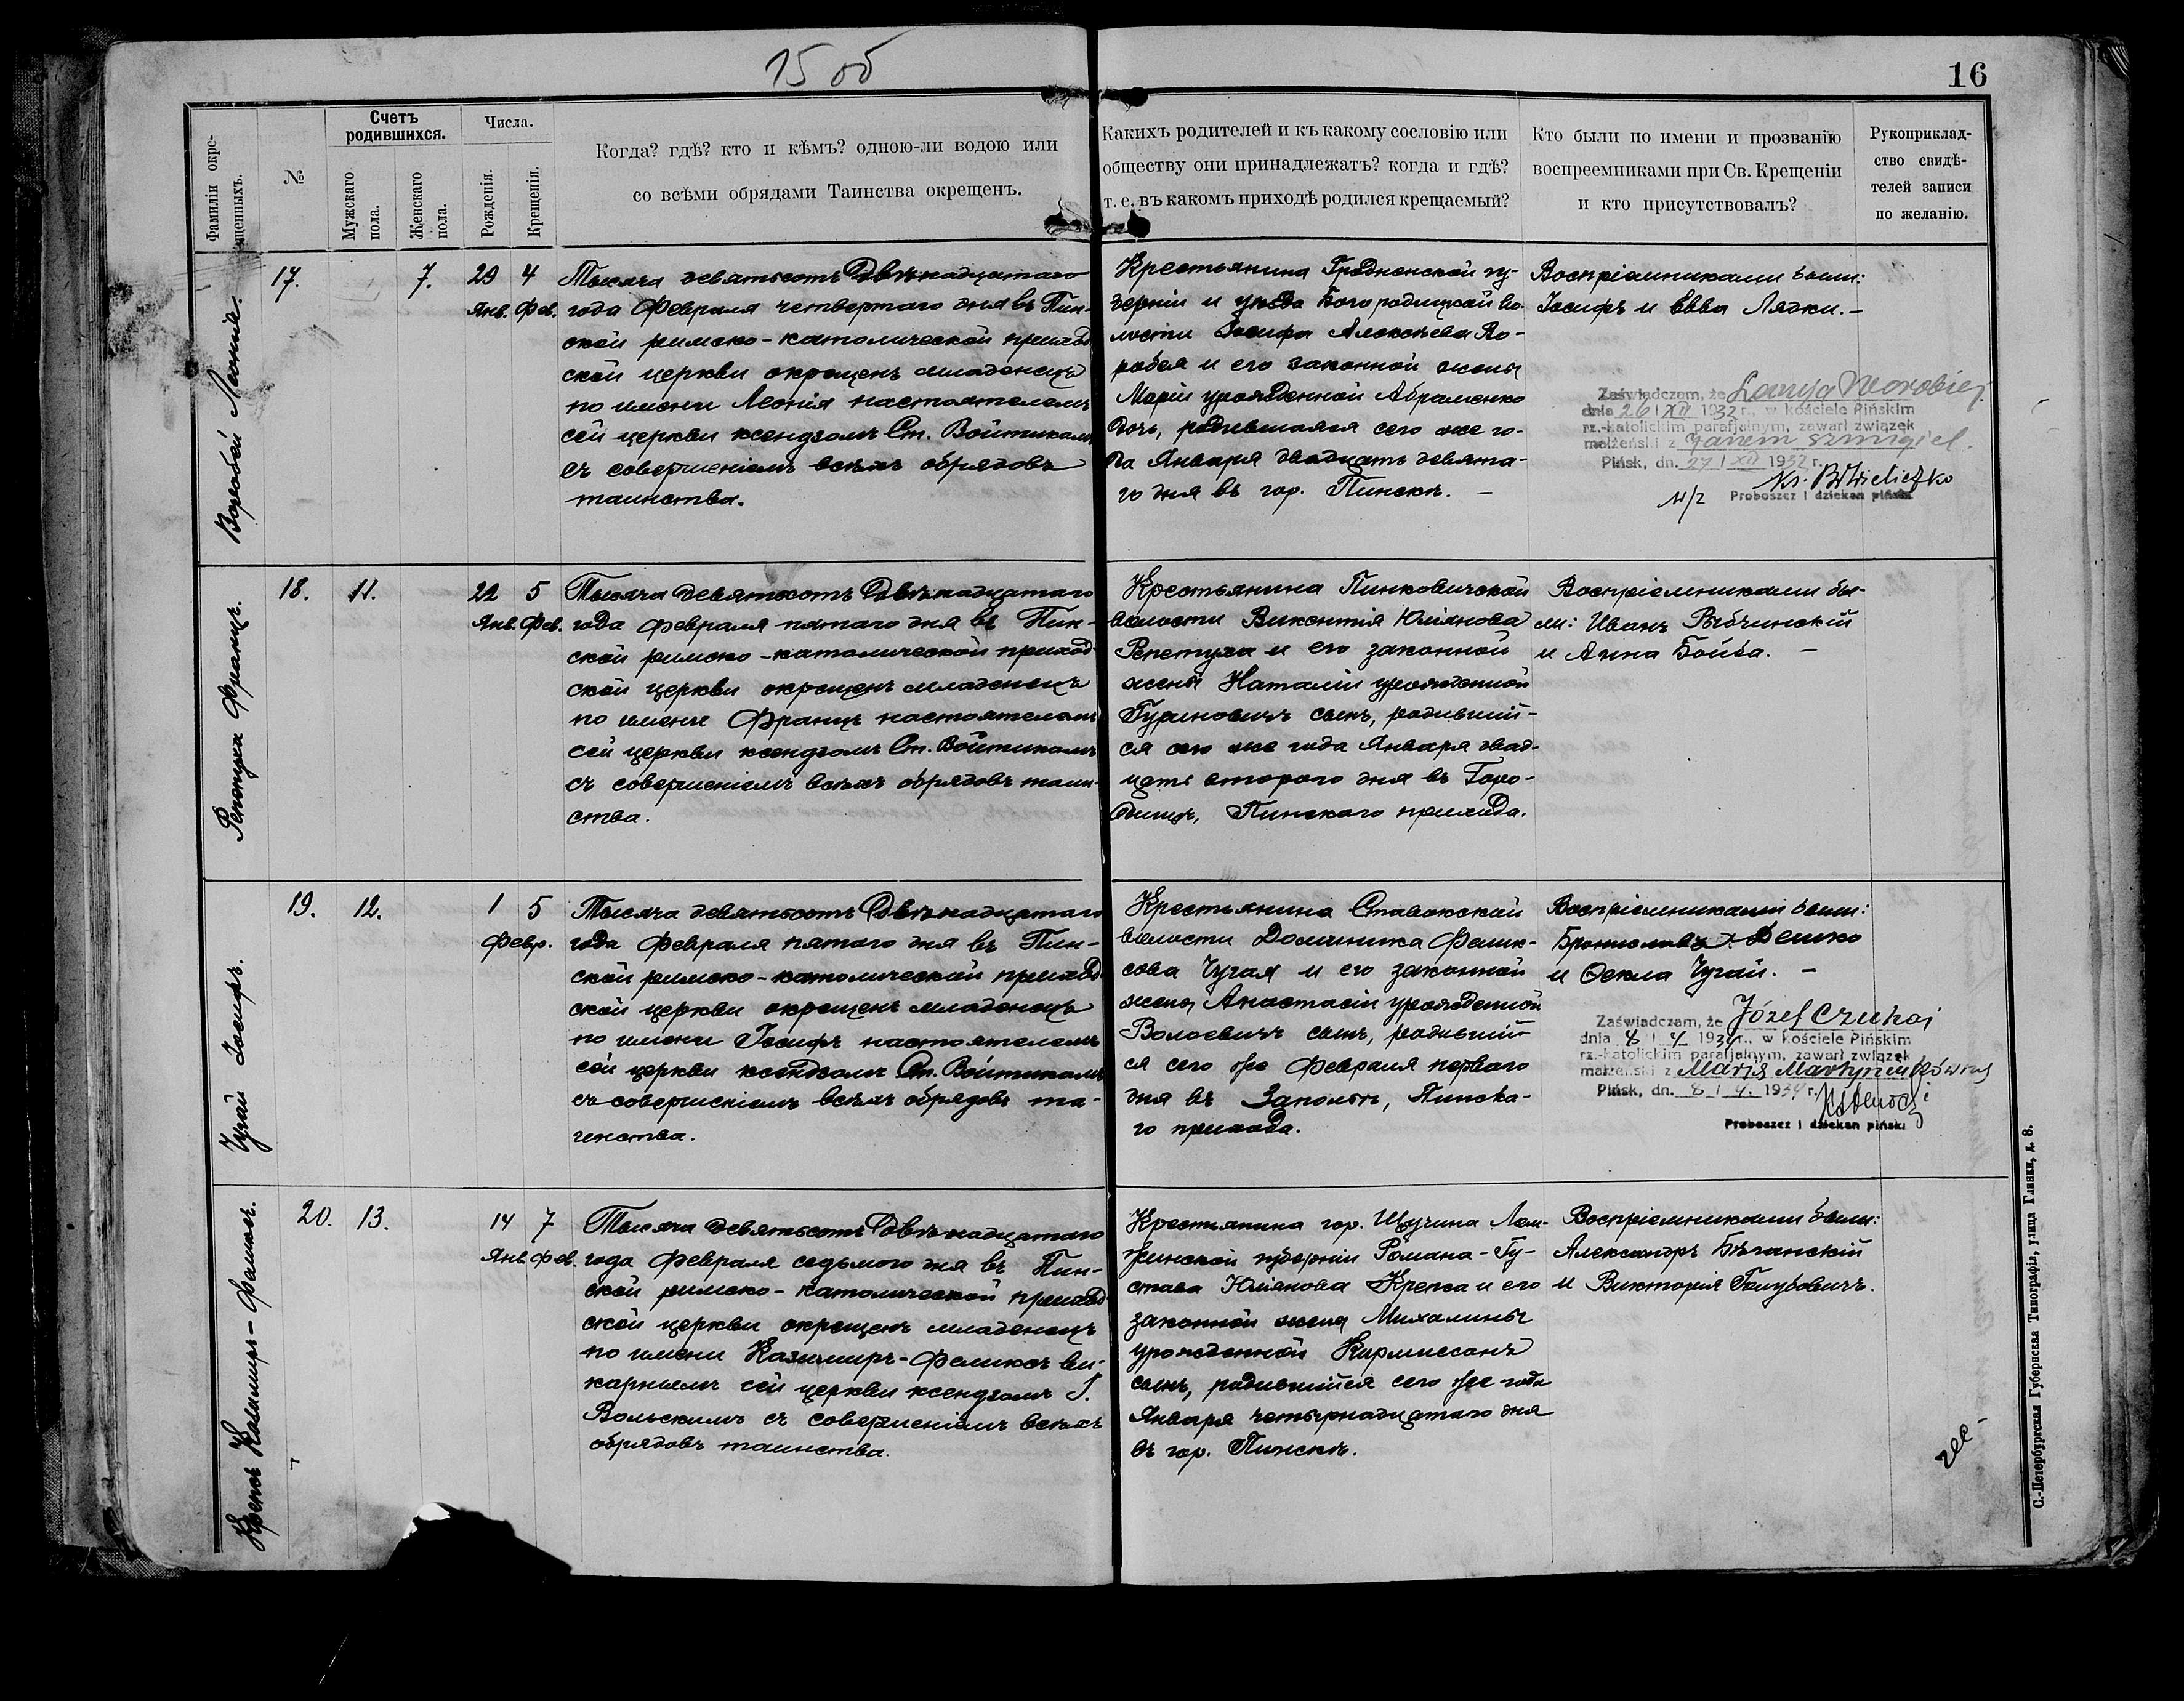 15 об
16
Фамиліи окре-
щенныхъ.
№
Счетъ
родившихся.
Мужскаго
пола.
Женскаго
пола.
Числа.
Рожденія.
Крещенія.
Когда? гдѣ? кто и кѣмъ? одною-ли водою или
со всѣми обрядами Таинства окрещенъ.
Какихъ родителей и къ какому сословію или
обществу они принадлежатъ? когда и гдѣ?
т. е. въ какомъ приходѣ родился крещаемый?
Кто были по имени и прозванію
воспреемниками при Св. Крещеніи
и кто присутствовалъ?
Рукоприклад-
ство свидѣ-
телей записи
по желанію.
Воробей Леонія.
17.
7.
29 4
Янв. Фев.
Тысяча девятьсотъ Двѣнадцатаго
года Февраля четвертаго дня въ Пин-
ской римско-католической приход
ской церкви окрещенъ младенецъ
по имени Леонія настоятелемъ
сей церкви ксендзомъ Ст. Войтикомъ
съ совершеніемъ всѣхъ обрядовъ
таинства.
Крестьянина Гродненской гу-
берніи и уѣзда Богородицкой во-
лости Іосифа Алексѣева Во-
робея и его законной жены
Маріи урожденной Абраменко
дочь, родившаяся сего же го-
да Января двадцать девята-
го дня въ гор. Пинскѣ. —
Воспріемниками были:
Іосифъ и Евва Лядки. —
Zaświadczam, że Worobiej
dnia 26 / XII 1932 r., w kościele Pińskim
rz.-katolickim parafjalnym, zawarł związek
małżeński z Janem Szmigiel.
Pińsk, dn. 27 / XII 1932 r.
Ks.
Proboszcz i dziekan piński
Репетуха Францъ.
18.
11.
22 5
Янв. Фев.
Тысяча девятьсотъ Двѣнадцатаго
года Февраля пятаго дня въ Пин-
ской римско-католической приход-
ской церкви окрещенъ младенецъ
по имени Францъ настоятелемъ
сей церкви ксендзомъ Ст. Войтикомъ
съ совершеніемъ всѣхъ обрядовъ таин-
ства.
Крестьянина Пинковичской
волости Викентія Юліанова
Репетуха и его законной
жены Наталіи урожденной
Гуриновичъ сынъ, родивший-
ся сего же года Января двад-
цать второго дня въ Горо-
дищѣ, Пинскаго прихода.
Воспріемниками бы-
ли: Иванъ Рыбчинскій
и Анна Бойба. —
Чугай Іосифъ.
19.
12.
1 5
Февр.
Тысяча девятьсотъ Двѣнадцатаго
года Февраля пятаго дня въ Пин-
ской римско-католической приход
ской церкви окрещенъ младенецъ
по имени Іосифъ настоятелемъ
сей церкви ксендзомъ Ст. Войтикомъ
съ совершеніемъ всѣхъ обрядовъ та-
инства.
Крестьянина Ставокской
волости Доминика Фелик-
сова Чугая и его законной
жены Анастасіи урожденной
Волоевичъ сынъ, родивший-
ся сего же Февраля перваго
дня въ Запольѣ, Пинска-
го прихода.
Воспріемниками были:
Брониславъ
и Текла Чугай. —
Zaświadczam, że Józef Czuhaj
dnia 8 / 4 1934 r., w kościele Pińskim
rz.-katolickim parafjalnym, zawarł związek
małżeński z Marją
Pińsk, dn. 8 / 4. 1934 r.
Proboszcz i dziekan piński
Крепсъ Казимиръ-Феликсъ.
20.
13.
14 7
Янв. Фев.
Тысяча девятьсотъ Двѣнадцатаго
года Февраля седьмого дня въ Пин-
ской римско-католической приход
ской церкви окрещенъ младенецъ
по имени Казимиръ-Феликсъ ви-
карнымъ сей церкви ксендзомъ І.
Вольскимъ съ совершеніемъ всѣхъ
обрядовъ таинства.
Крестьянина гор. Щучина Лом-
жинской губерніи Романа-Гу-
става Юліанова Крепса и его
законной жены Михалины
урожденной
сынъ, родившійся сего же года
Января четырнадцатаго дня
въ гор. Пинскѣ.
Воспріемниками были:
Александръ Бѣганскій
и Викторія Голубовичъ.
С.-Петербургская Губернская Типографія, улица Глинки, д. 8.